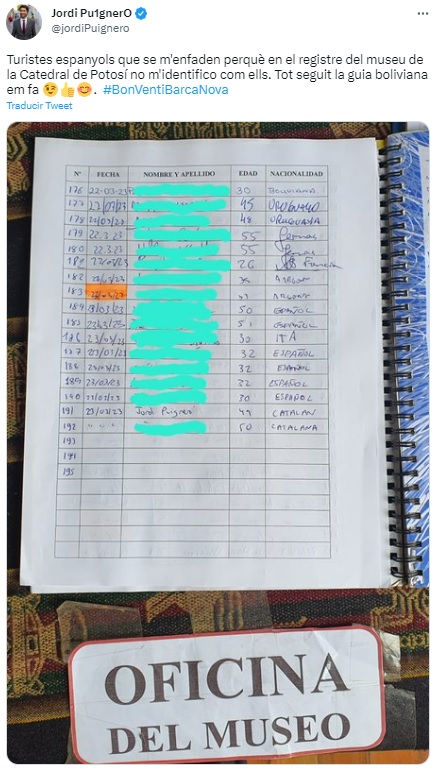 Jordi Pu1gnerO
@jordiPuignero
Turistes espanyols que se m'enfaden perquè en el registre del museu de
la Catedral de Potosí no m'identifico com ells. Tot seguit la guia boliviana
em fa 😉👍😊. #BonVentiBarcaNova
Traducir Tweet
Nº FECHA NOMBRE Y APELLIDO EDAD NACIONALIDAD
176 22-03-23 30 BOLIVIANA
177 22/03/23 45 URUGUAYO
178 22/03/23 48 URUGUAYA
179 22.3.23 55
180 22.3.23 55
181 22/03/23 26
182
183
184 23/03/23 50 ESPAÑOL
185 51 ESPAÑOL
186 23/03/23 30 ITA
187 23/03/23 32 ESPAÑOL
188 23/03/23 32 ESPAÑOL
189 23/03/23 22 ESPAÑOL
190 23/03/23 30 ESPAÑOL
191 23/03/23 Jordi Puignero 49 CATALAN
192 " " " 50 CATALANA
193
194
195
OFICINA
DEL MUSEO